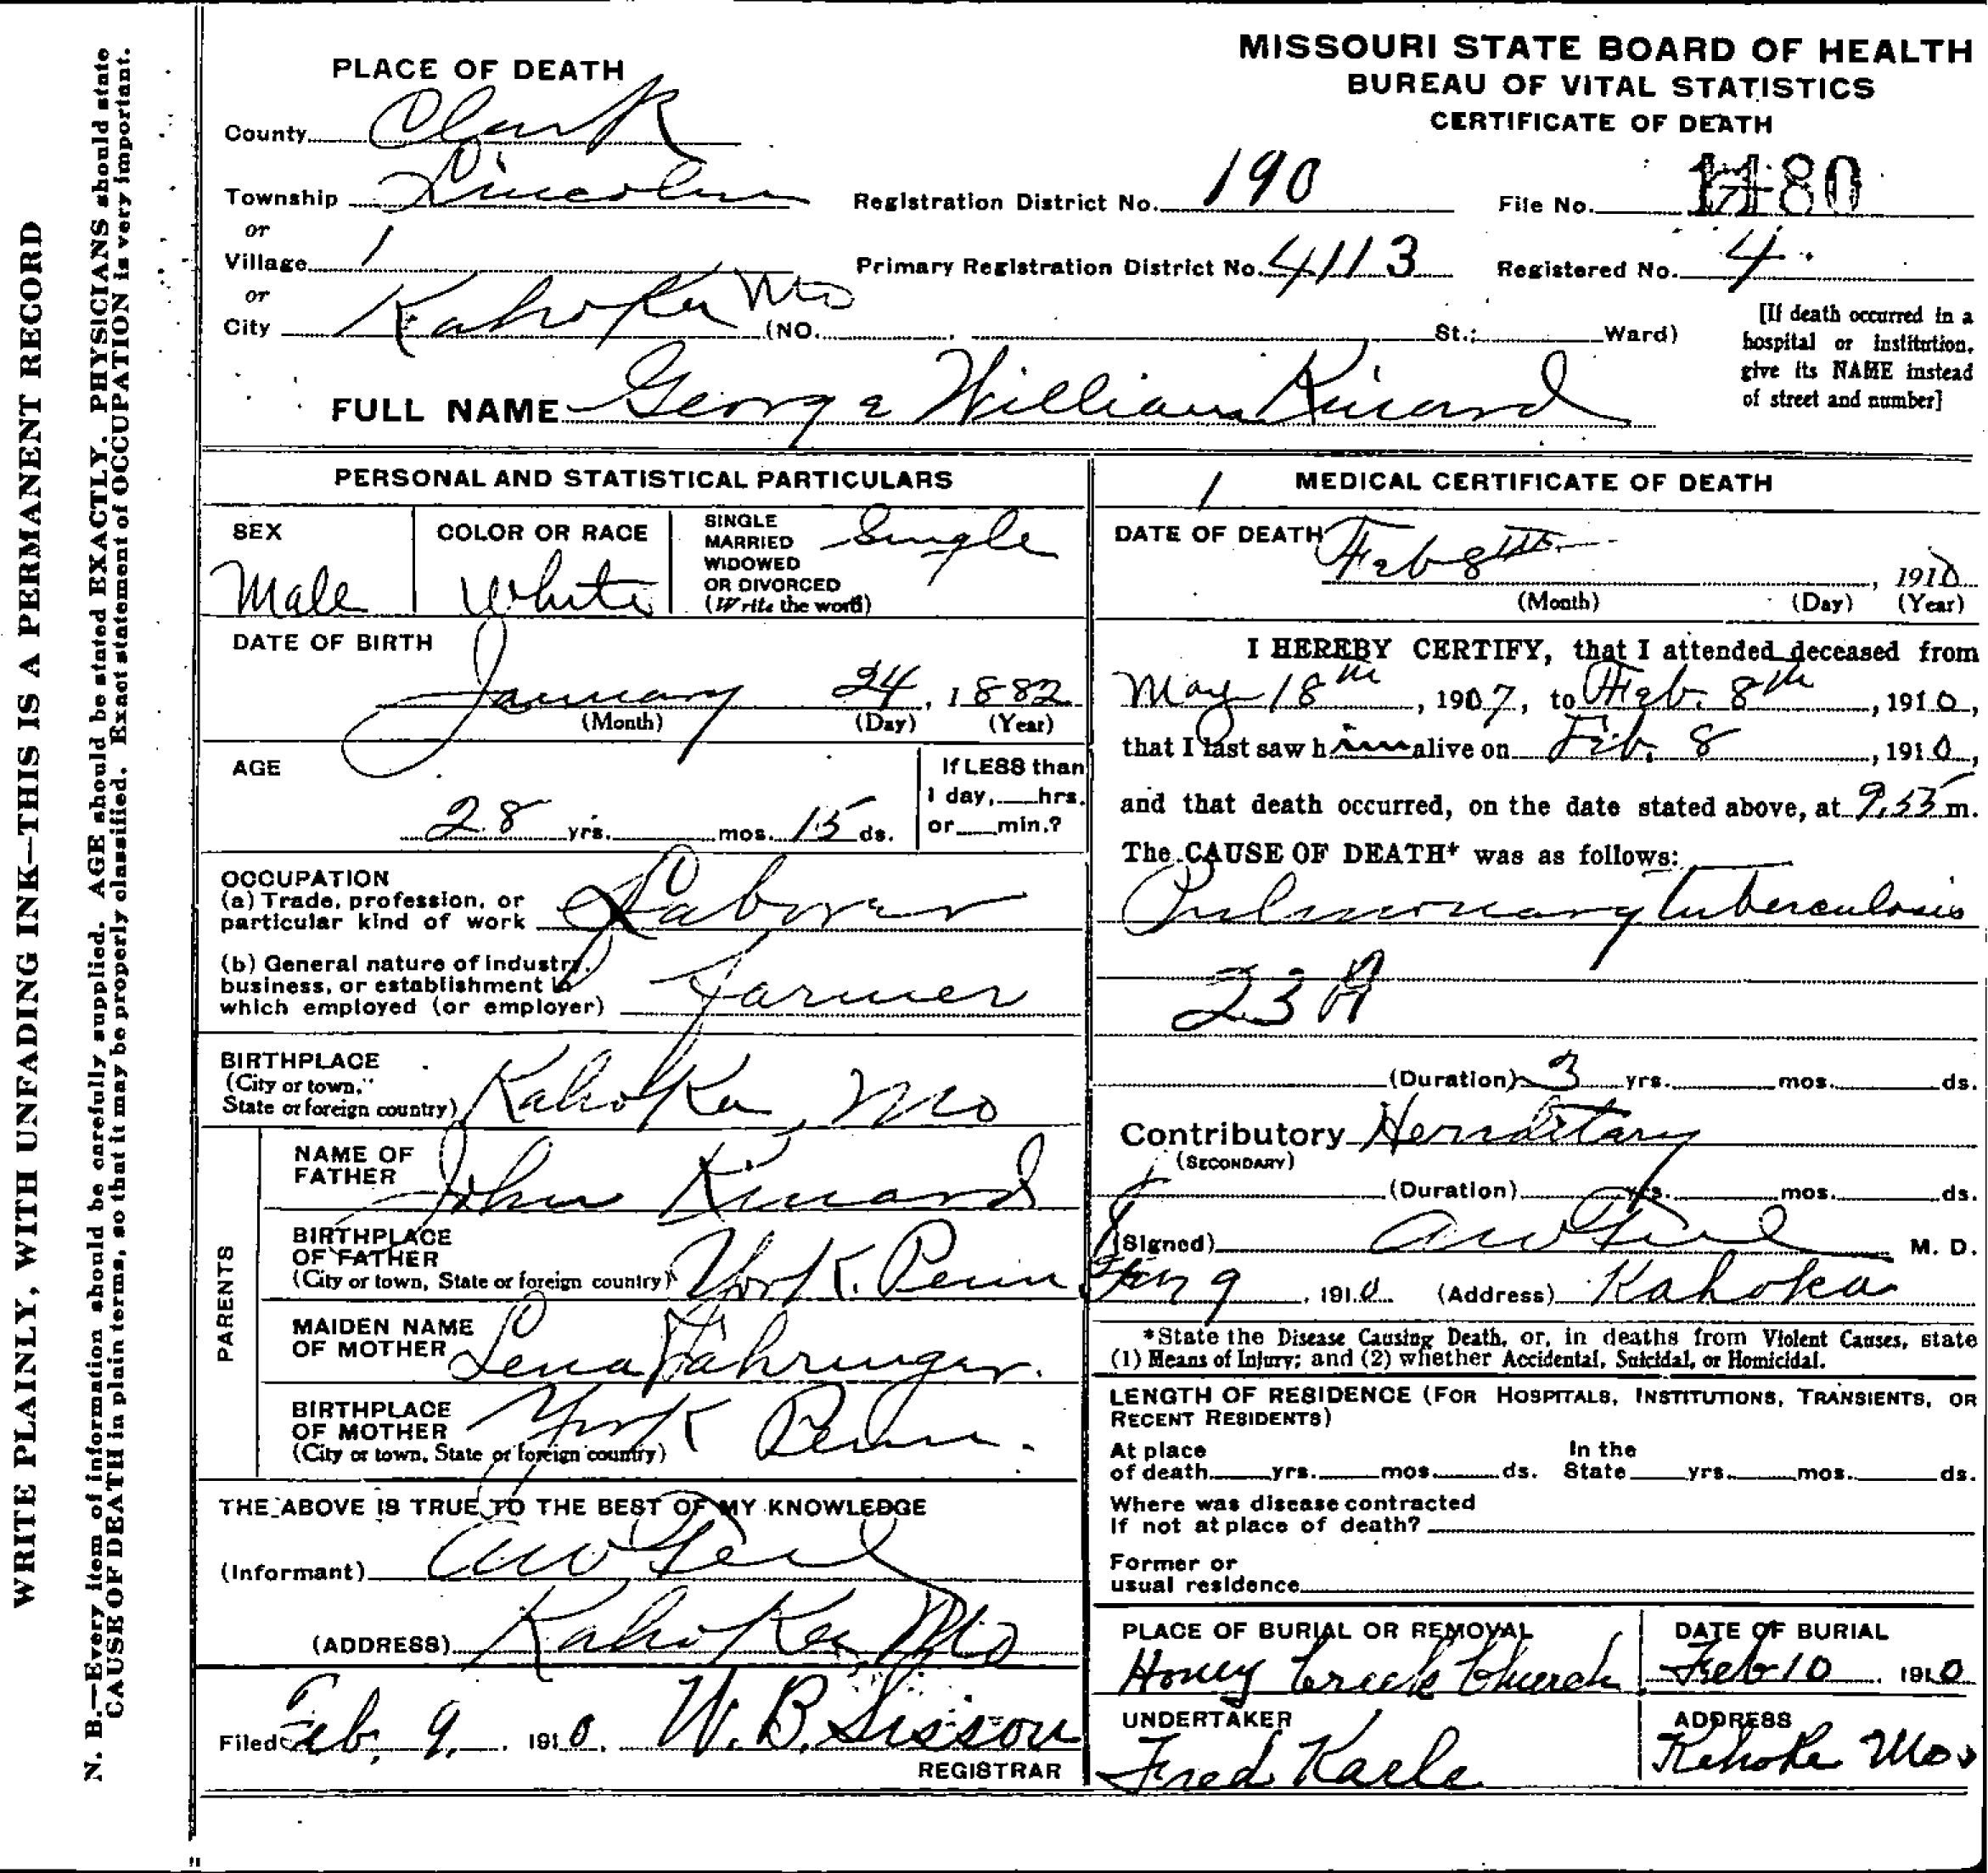 WRITE PLAINLY, WITH UNFADING INK—THIS IS A PERMANENT RECORD
N. B.—Every item of information should be carefully supplied. AGE should be stated EXACTLY. PHYSICIANS should state
CAUSE OF DEATH in plain terms, so that it may be properly classified. Exact statement of OCCUPATION is very important.
MISSOURI STATE BOARD OF HEALTH
BUREAU OF VITAL STATISTICS
CERTIFICATE OF DEATH
PLACE OF DEATH
County Clark
Township Lincoln Registration District No. 190 File No.
or
Village Primary Registration District No. 4113 Registered No. 4
or
City Kahoka Mo (NO. St.; Ward)
[If death occurred in a
hospital or institution,
give its NAME instead
of street and number]
FULL NAME George William Kinard
PERSONAL AND STATISTICAL PARTICULARS
SEX
Male
COLOR OR RACE
White
SINGLE
MARRIED
WIDOWED
OR DIVORCED
(Write the word)
Single
DATE OF BIRTH
January 24, 1882
(Month) (Day) (Year)
AGE
28 yrs. mos. 15 ds.
If LESS than
1 day, hrs.
or min.?
OCCUPATION
(a) Trade, profession, or
particular kind of work Laborer
(b) General nature of industry,
business, or establishment in
which employed (or employer) Farmer
BIRTHPLACE
(City or town,
State or foreign country) Kahoka, Mo
PARENTS
NAME OF
FATHER John Kinard
BIRTHPLACE
OF FATHER
(City or town, State or foreign country) York. Penn
MAIDEN NAME
OF MOTHER Lena Fahringer.
BIRTHPLACE
OF MOTHER
(City or town, State or foreign country) York Penn.
THE ABOVE IS TRUE TO THE BEST OF MY KNOWLEDGE
(Informant)
(ADDRESS) Kahoka, Mo
Filed Feb. 9, 1910, W. B. Sisson
REGISTRAR
MEDICAL CERTIFICATE OF DEATH
DATE OF DEATH
Feb 8th, 1910
(Month) (Day) (Year)
I HEREBY CERTIFY, that I attended deceased from
May 18th, 1907, to Feb. 8th, 1910,
that I last saw him alive on Feb. 8, 1910,
and that death occurred, on the date stated above, at 9.55 m.
The CAUSE OF DEATH* was as follows:
Pulmonary tuberculosis
23 A
(Duration) 3 yrs. mos. ds.
Contributory Heriditary
(SECONDARY)
(Duration) yrs. mos. ds.
(Signed) M. D.
9, 1910 (Address) Kahoka
*State the Disease Causing Death, or, in deaths from Violent Causes, state
(1) Means of Injury; and (2) whether Accidental, Suicidal, or Homicidal.
LENGTH OF RESIDENCE (FOR HOSPITALS, INSTITUTIONS, TRANSIENTS, OR
RECENT RESIDENTS)
At place In the
of death yrs. mos. ds. State yrs. mos. ds.
Where was disease contracted
If not at place of death?
Former or
usual residence
PLACE OF BURIAL OR REMOVAL
Honey Creek Church
DATE OF BURIAL
Feb 10 1910
UNDERTAKER
Fred Karle
ADDRESS
Kahoka Mo